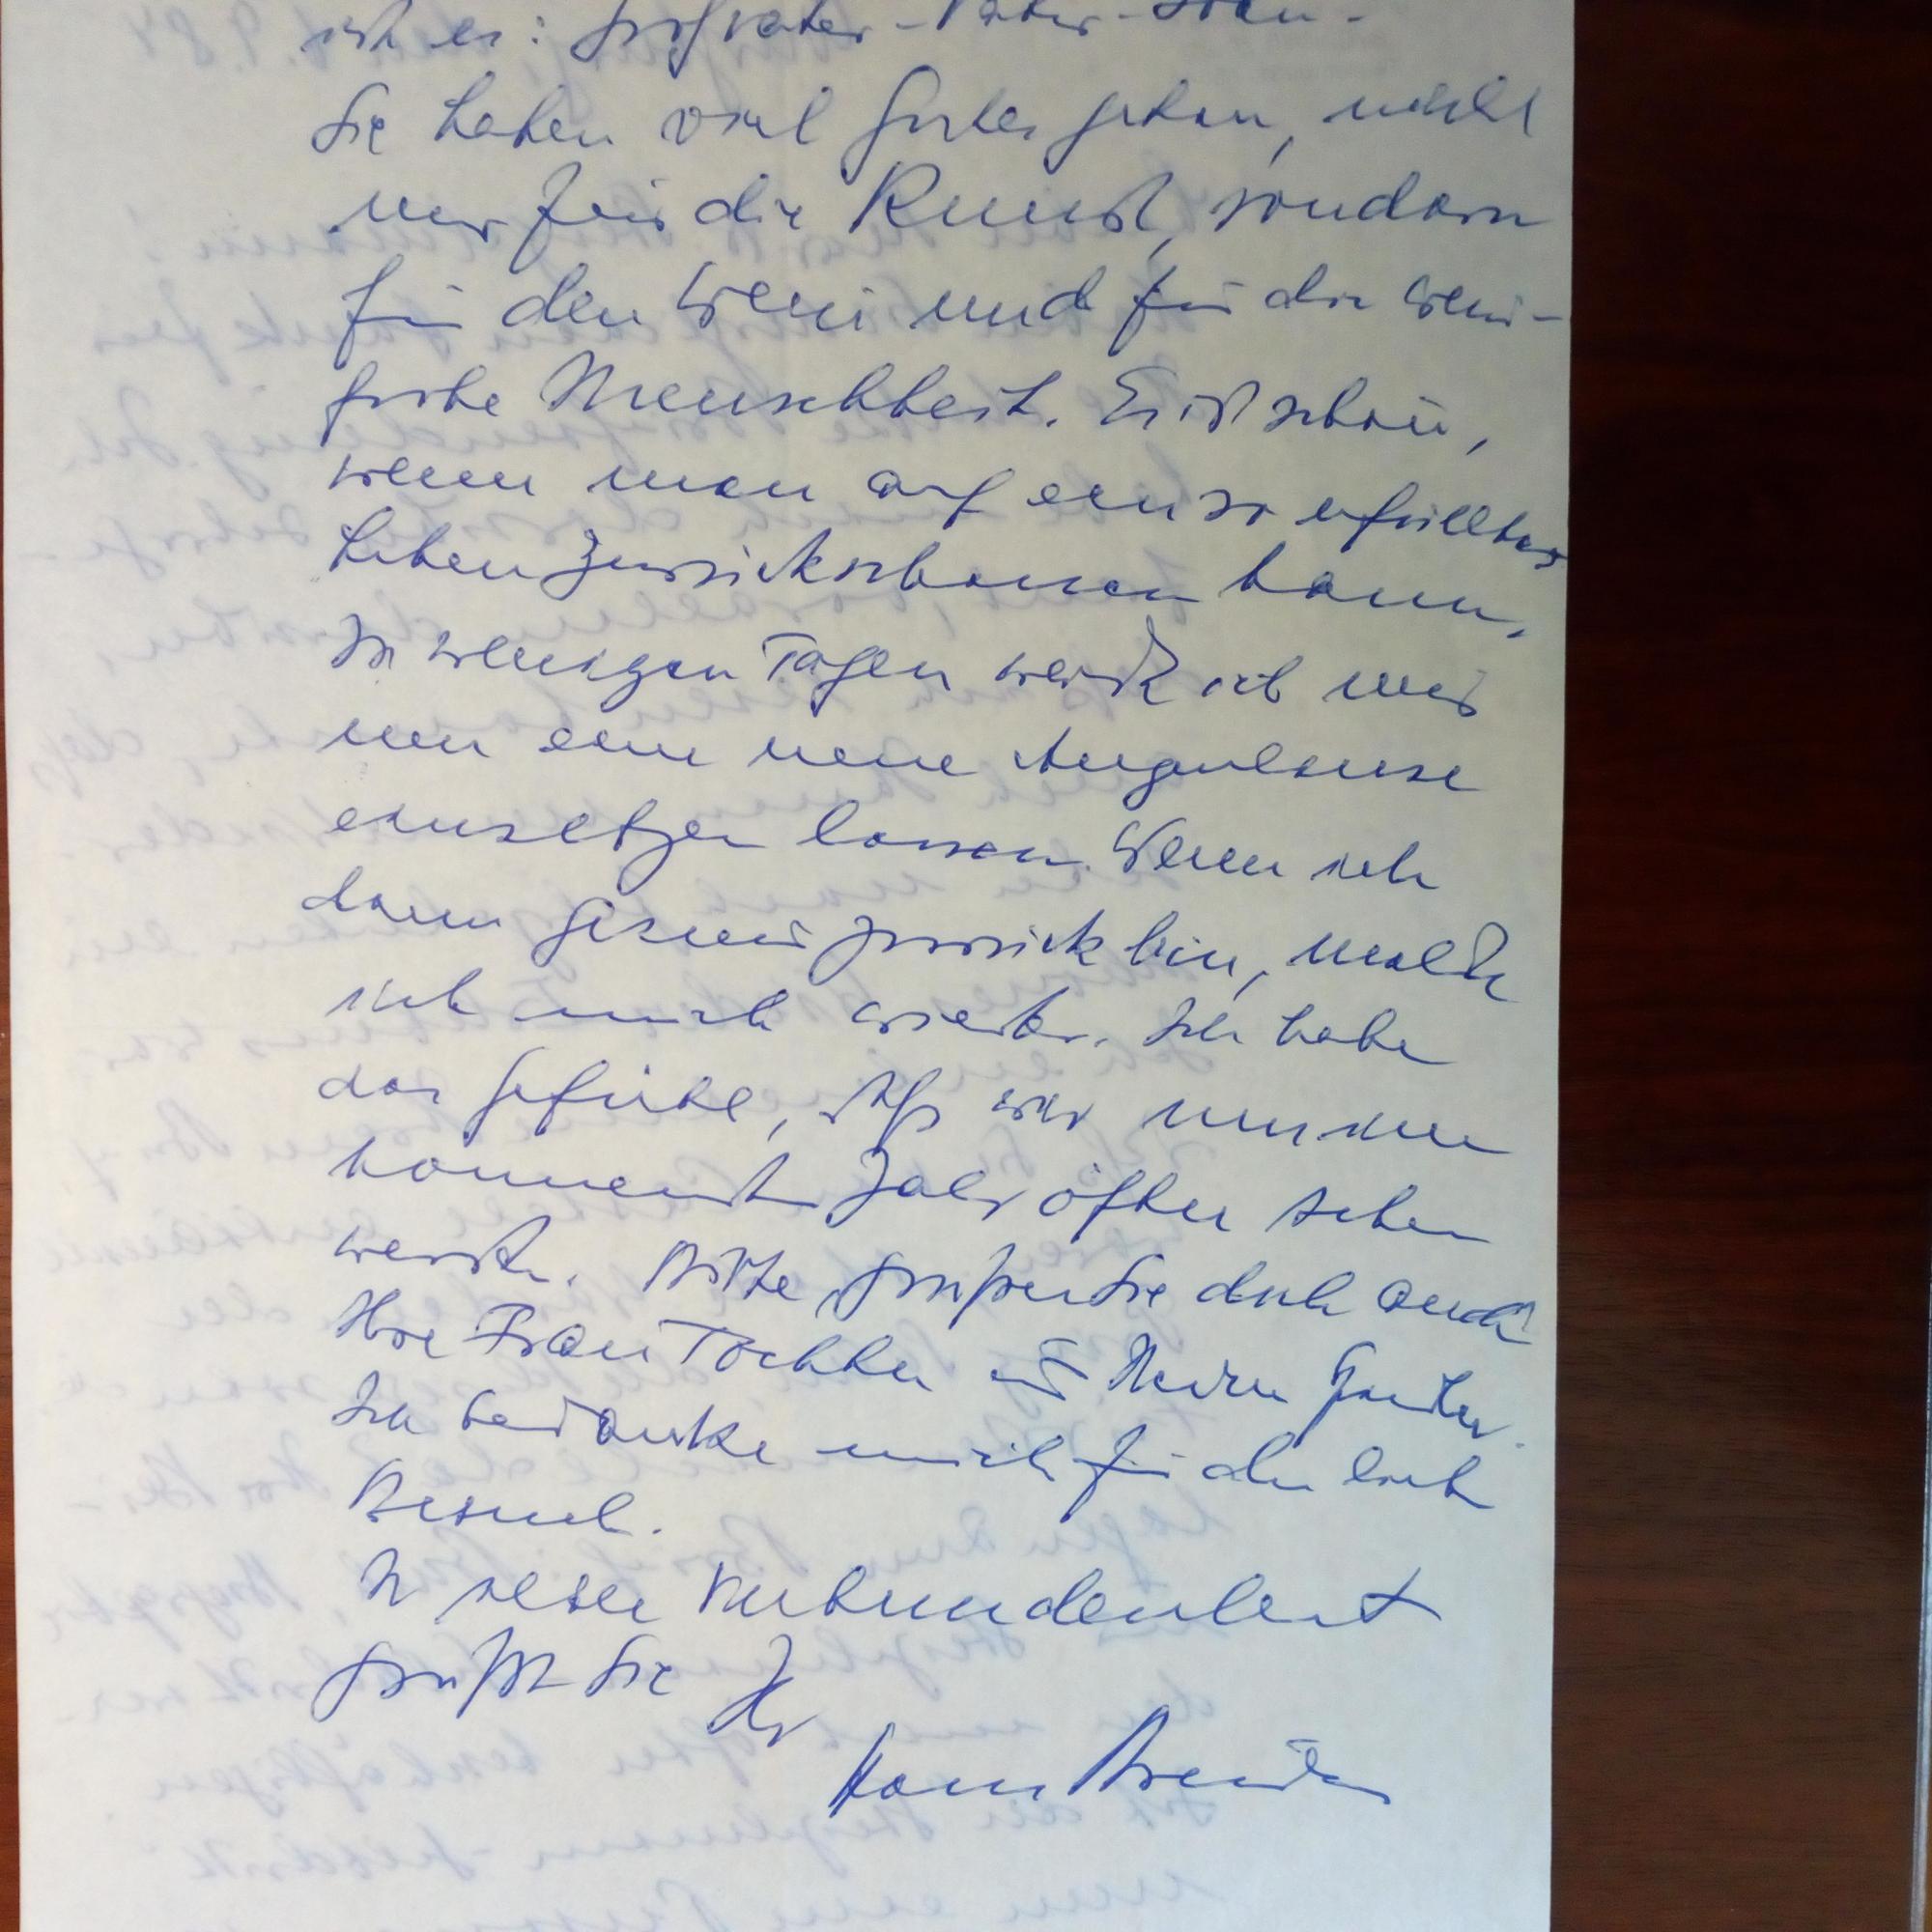 ist er: Großvater - Vater - Sohn -
Sie haben viel Gutes getan, nicht
nur für die Kunst, sondern
für den Wein und für die wein-
frohe Menschheit. Es ist schön,
wenn man auf ein so erfülltes
Leben zurückschauen kann.
In wenigen Tagen werde ich mir
nun eine neue Augenlinse
einsetzen lassen. Wenn ich
dann gesund zurück bin, melde
ich mich wieder. Ich habe
das Gefühl, daß wir uns im
kommenden Jahr öfter sehen
werden. Bitte, grüßen Sie doch auch
Ihre Frau Tochter und Herrn
Ich bedanke mich für den lieben
Besuch.
In alter Verbundenheit
grüßt Sie Ihr